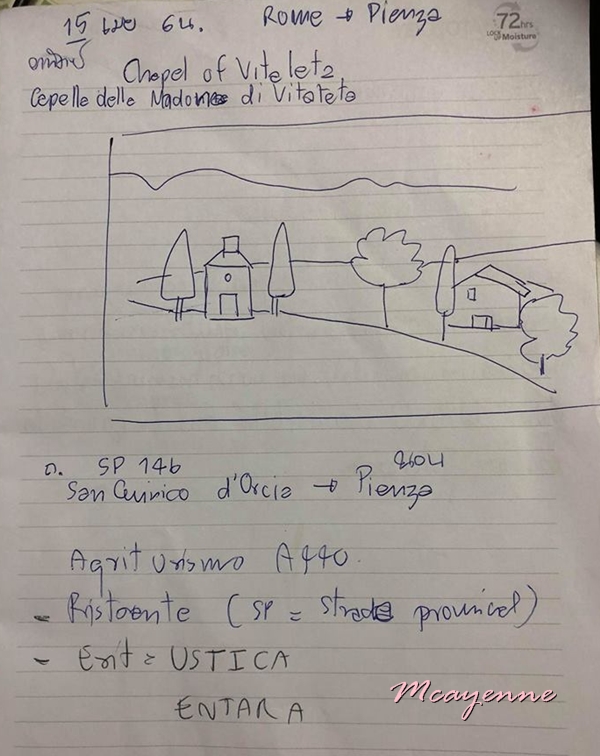 15 เมย 64. Rome → Pienza
72hrs
LOCK Moisture
อาทิตย์ Chapel of Viteleta
Cepelle delle Madonne di Vitaleta
ถ. SP 146
San Quirico d'Orcia → Pienza
Agriturismo
- Ristoente (SP = Strade provincel)
- Exit = USTICA
ENTARA
Mcayenne